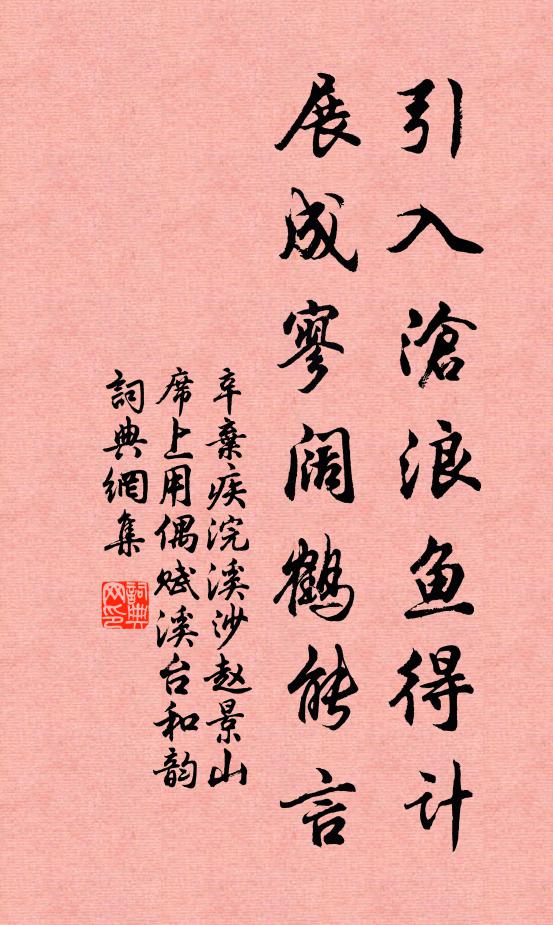 引入滄浪鱼得计
展成寥阔鶴能言
辛棄疾浣溪沙赵景山
席上用偶赋溪台和韵
詞典網集
詞典
网印